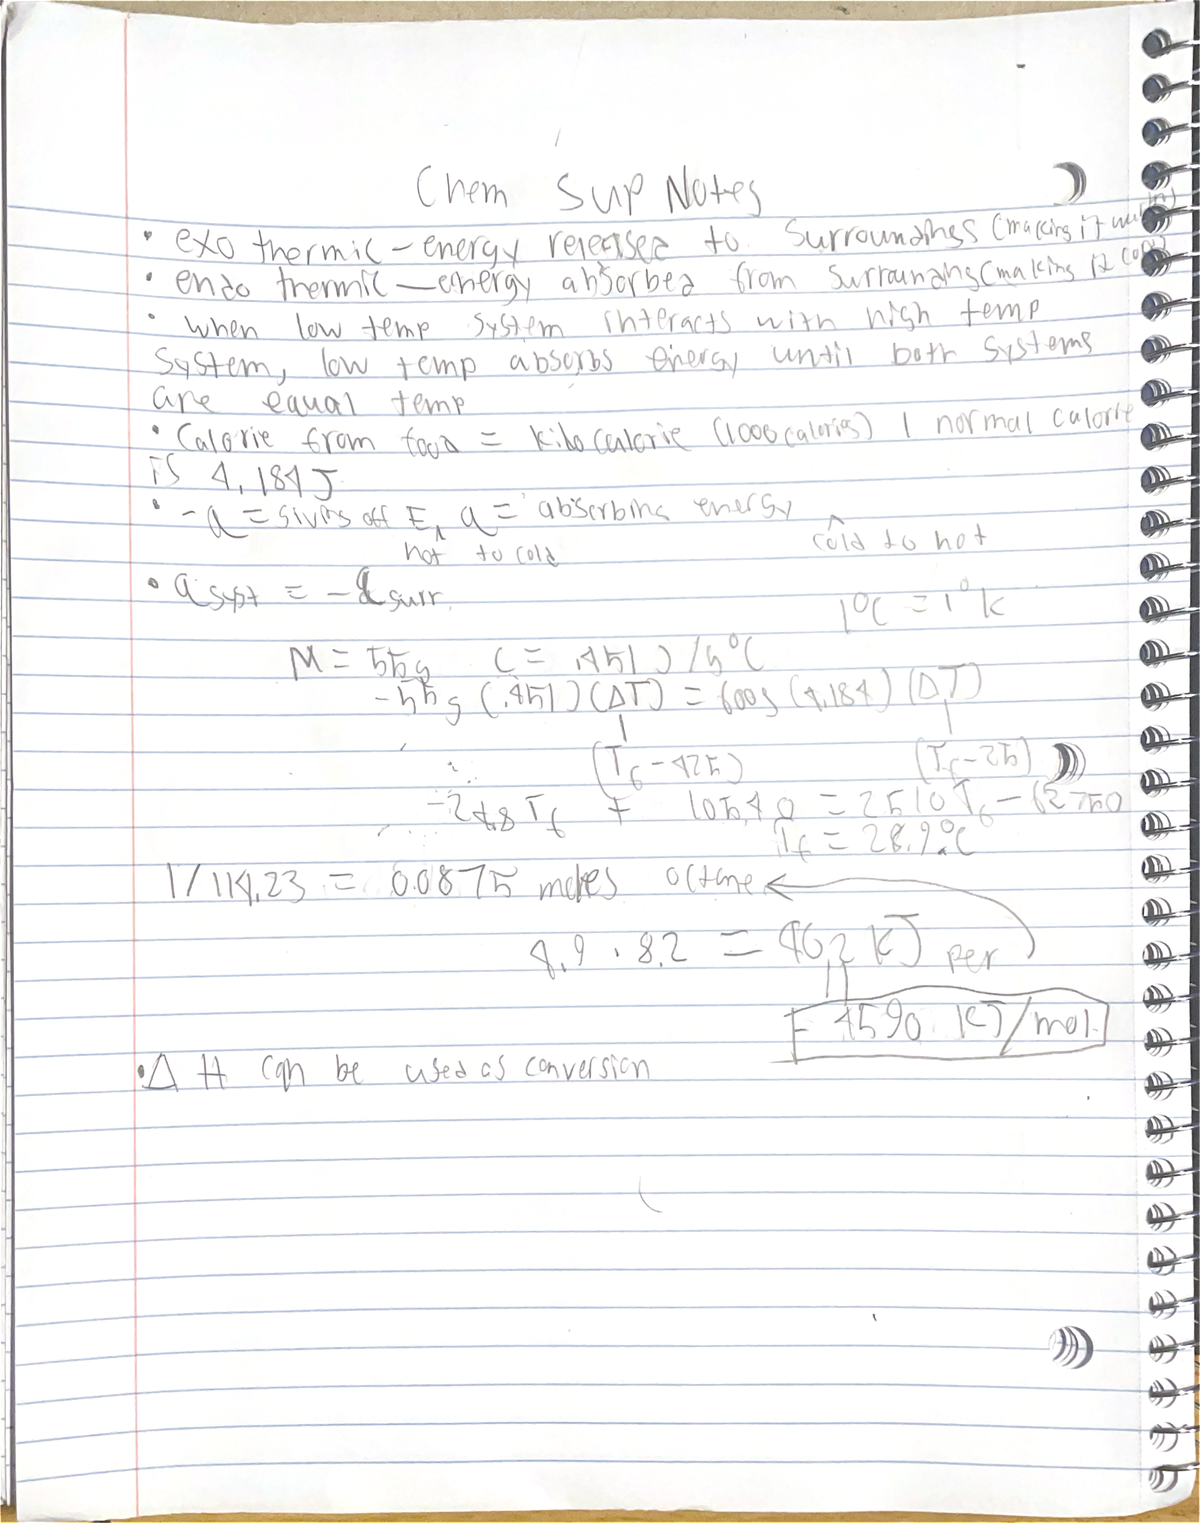 Chem Sup Notes
• exothermic - energy released to surroundings (making it warm)
• endo thermic — energy absorbed from surroundings (making it cold)
• when low temp system interacts with high temp
system, low temp absorbs energy until both systems
are equal temp
• Calorie from food = kilo calorie (1000 calories) 1 normal calorie
is 4.184J
• -q = gives off E, q = absorbing energy
hot to cold
cold to hot
• q syst = -q surr.
1°C = 1°K
M = 55g C = .451 J/g°C
-55g (.451) (ΔT) = 600g (4.184) (ΔT)
(Tf - 425) (Tf - 25)
-24.8 Tf + 10540 = 2510 Tf - 62750
Tf = 28.9°C
1/114.23 = 0.00875 moles octane
4.9 · 8.2 = 40.2 KJ per
= 4590 KJ/mol
• Δ H can be used as conversion